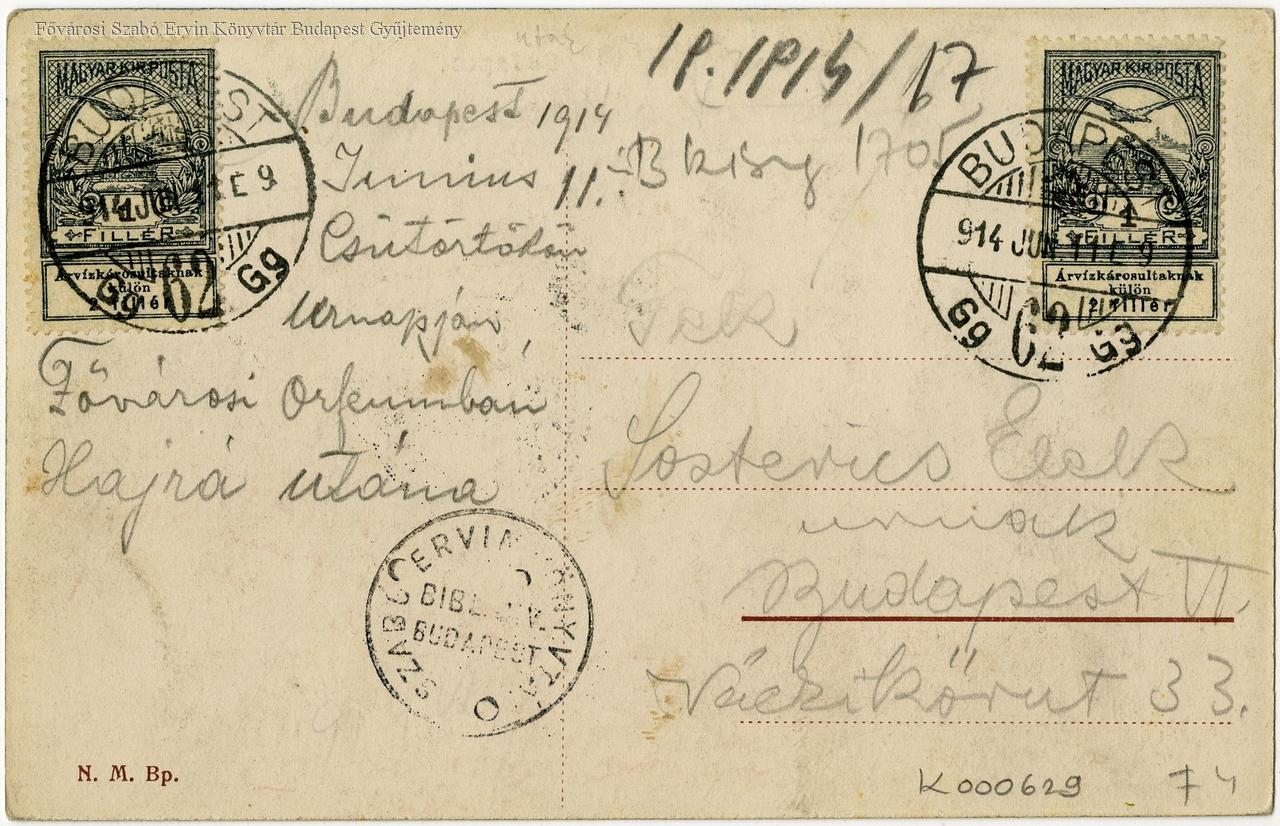 Fővárosi Szabó Ervin Könyvtár Budapest Gyűjtemény
MAGYAR KIR. POSTA
1
FILLÉR
Árvízkárosultaknak
külön
2 fillér
BUDAPEST
914 JUN 11 E 9
Gg 62 Gg
Budapest 1914
Junius 11.
Csütörtökön
Urnapján
Fővárosi Orfeumban
Hajrá utána
B 1705
MAGYAR KIR. POSTA
1
FILLÉR
Árvízkárosultaknak
külön
2 fillér
BUDAPEST
914 JUN 11 E 9
Gg 62 Gg
Tek
Sostevics Elek
urnak
Budapest VI.
Váczikörut 33.
SZABÓ ERVIN KÖNYVTÁR
BUDAPEST
N. M. Bp.
K 000629
74